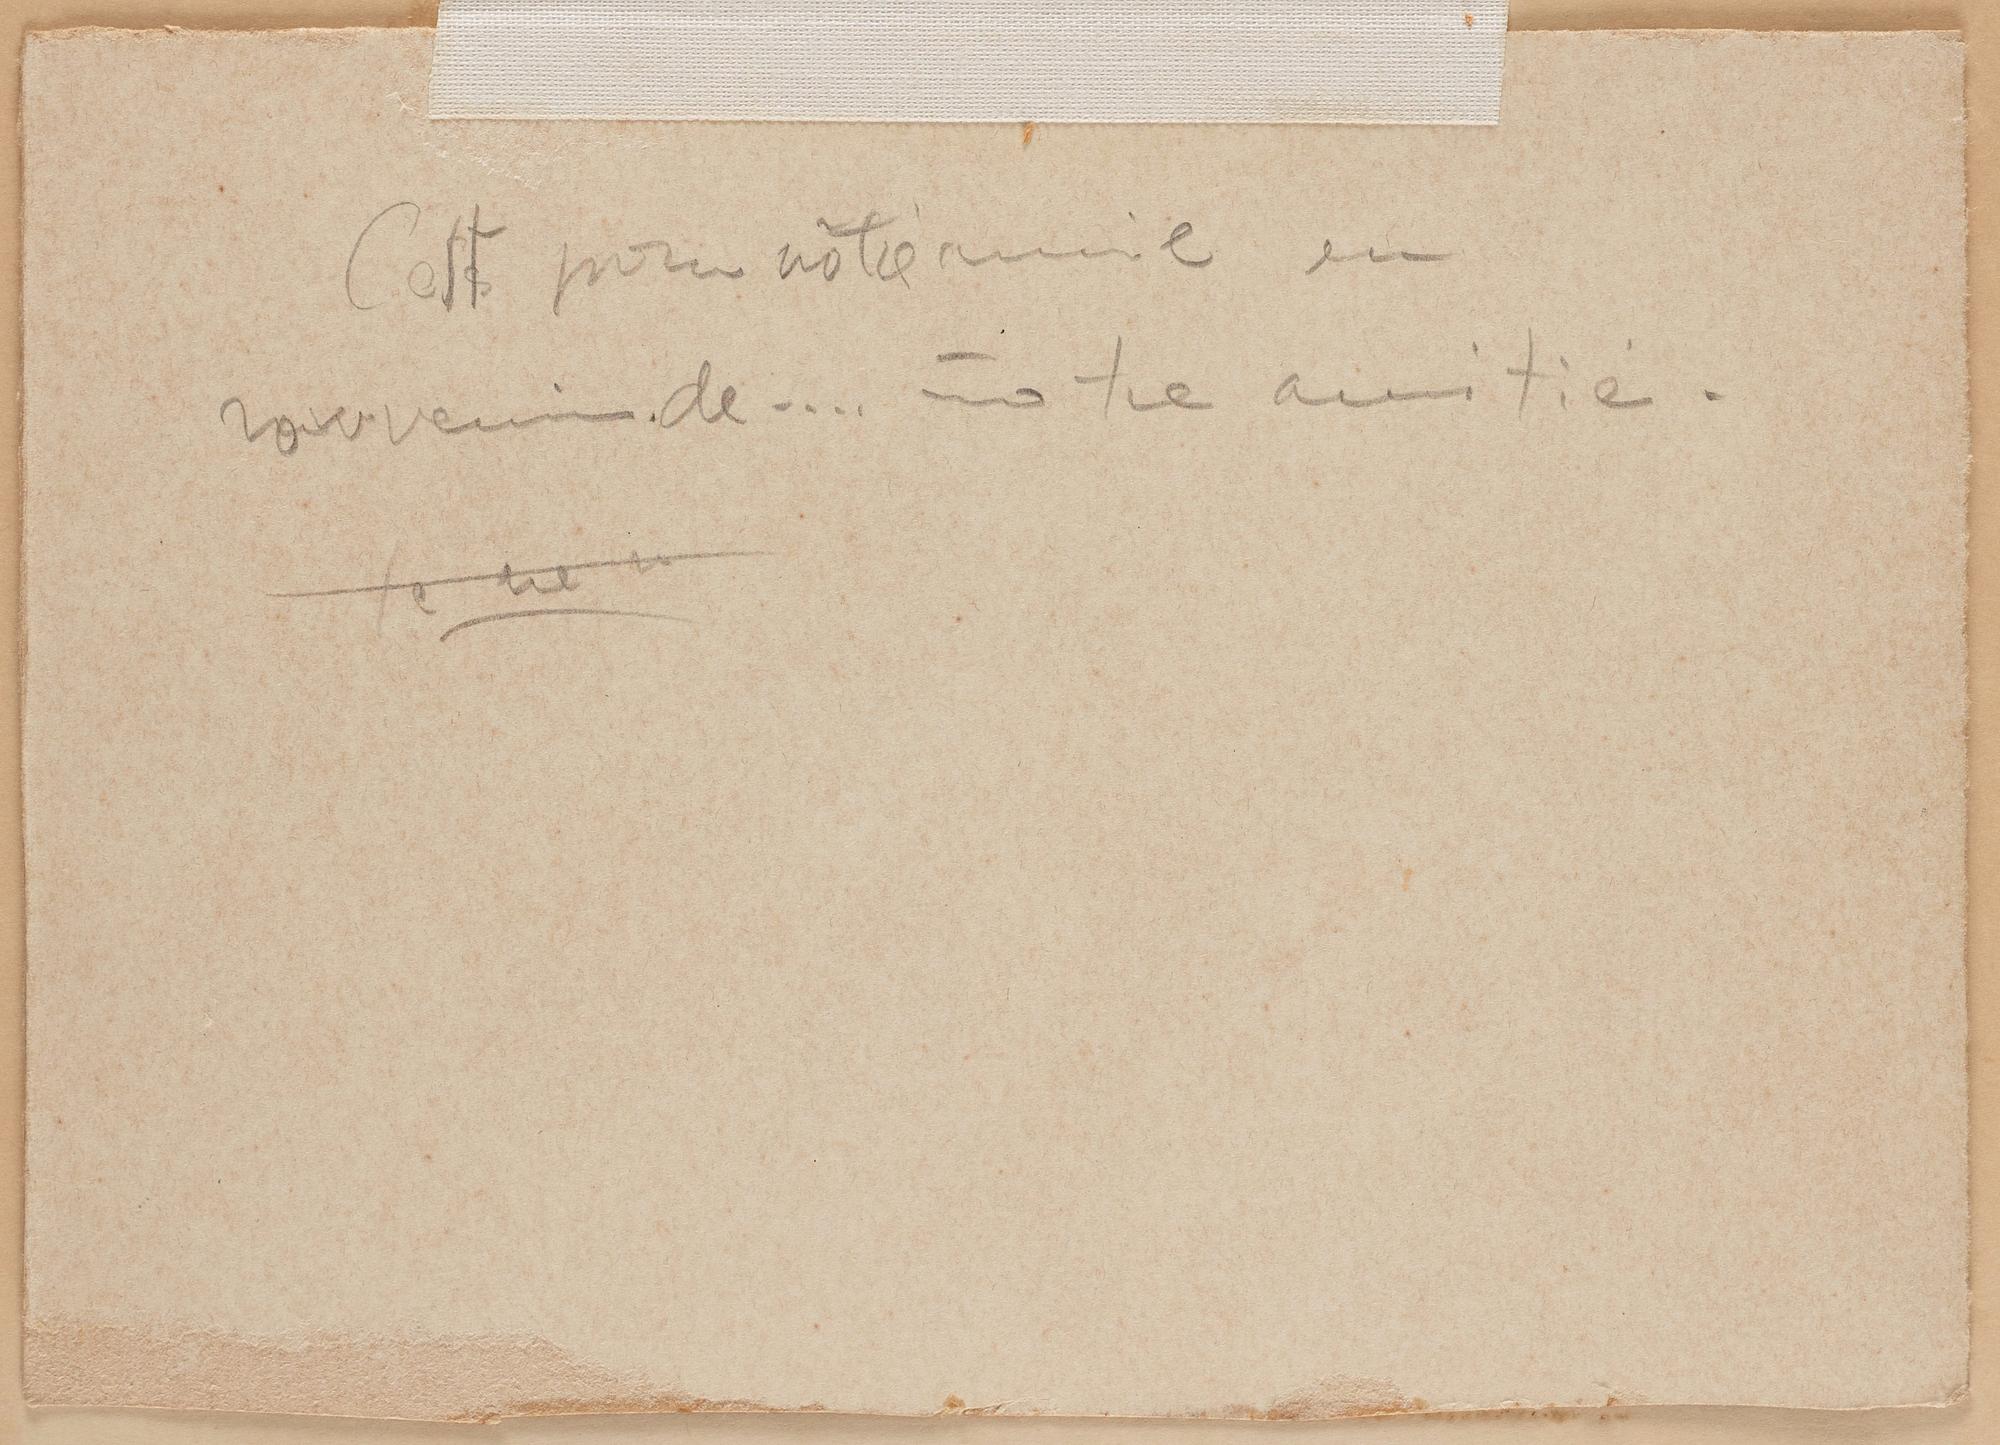 C'est pour nôtre amie en
souvenir de .... notre amitié.